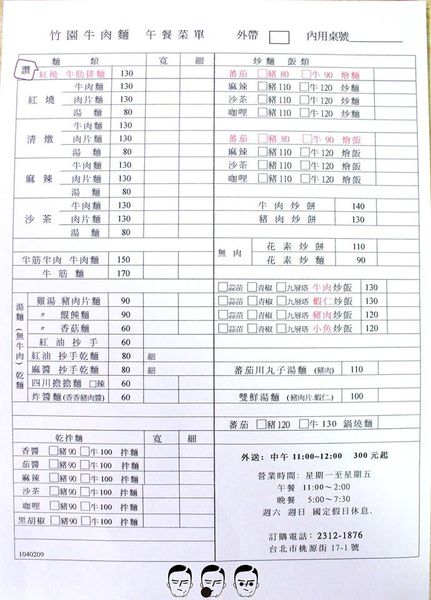 竹園牛肉麵 午餐菜單 外帶 □ 內用桌號
麵類 寬 細
讚 紅燒 牛肋排麵 130
紅燒
牛肉麵 130
肉片麵 130
湯麵 80
清燉
牛肉麵 130
肉片麵 130
湯麵 80
麻辣
牛肉麵 130
肉片麵 130
湯麵 80
沙茶
牛肉麵 130
肉片麵 130
湯麵 80
牛筋牛肉 牛肉麵 150
牛筋麵 170
湯麵(無牛肉)乾麵
雞湯 豬肉片麵 90
〃 餛飩麵 90
〃 香菇麵 60
紅油 抄手 60
紅油 抄手乾麵 80 細
麻醬 抄手乾麵 80 細
四川擔擔麵 □辣 60
炸醬麵(香香豬肉醬) 60
乾拌麵 寬 細
香醬 □豬90 □牛100 拌麵
茄醬 □豬90 □牛100 拌麵
麻辣 □豬90 □牛100 拌麵
沙茶 □豬90 □牛100 拌麵
咖哩 □豬90 □牛100 拌麵
黑胡椒 □豬90 □牛100 拌麵
1040209
炒麵 飯類
蕃茄 □豬80 □牛90 燴麵
麻辣 □豬110 □牛120 炒麵
沙茶 □豬110 □牛120 炒麵
咖哩 □豬110 □牛120 炒麵
蕃茄 □豬80 □牛90 燴飯
麻辣 □豬110 □牛120 燴飯
沙茶 □豬110 □牛120 燴飯
咖哩 □豬110 □牛120 燴飯
牛肉炒餅 140
豬肉炒餅 130
無肉
花素炒餅 110
花素炒麵 90
□蒜苗 □青椒 □九層塔 牛肉炒飯 130
□蒜苗 □青椒 □九層塔 蝦仁炒飯 130
□蒜苗 □青椒 □九層塔 豬肉炒飯 120
□蒜苗 □青椒 □九層塔 小魚炒飯 120
蕃茄川丸子湯麵 (豬肉) 110
雙鮮湯麵 (豬肉片.蝦仁) 100
蕃茄 □豬120 □牛130 鍋燒麵
外送: 中午 11:00~12:00 300元起
營業時間: 星期一至星期五
午餐 11:00~2:00
晚餐 5:00~7:30
週六 週日 國定假日休息.
訂購電話: 2312-1876
台北市桃源街17-1號